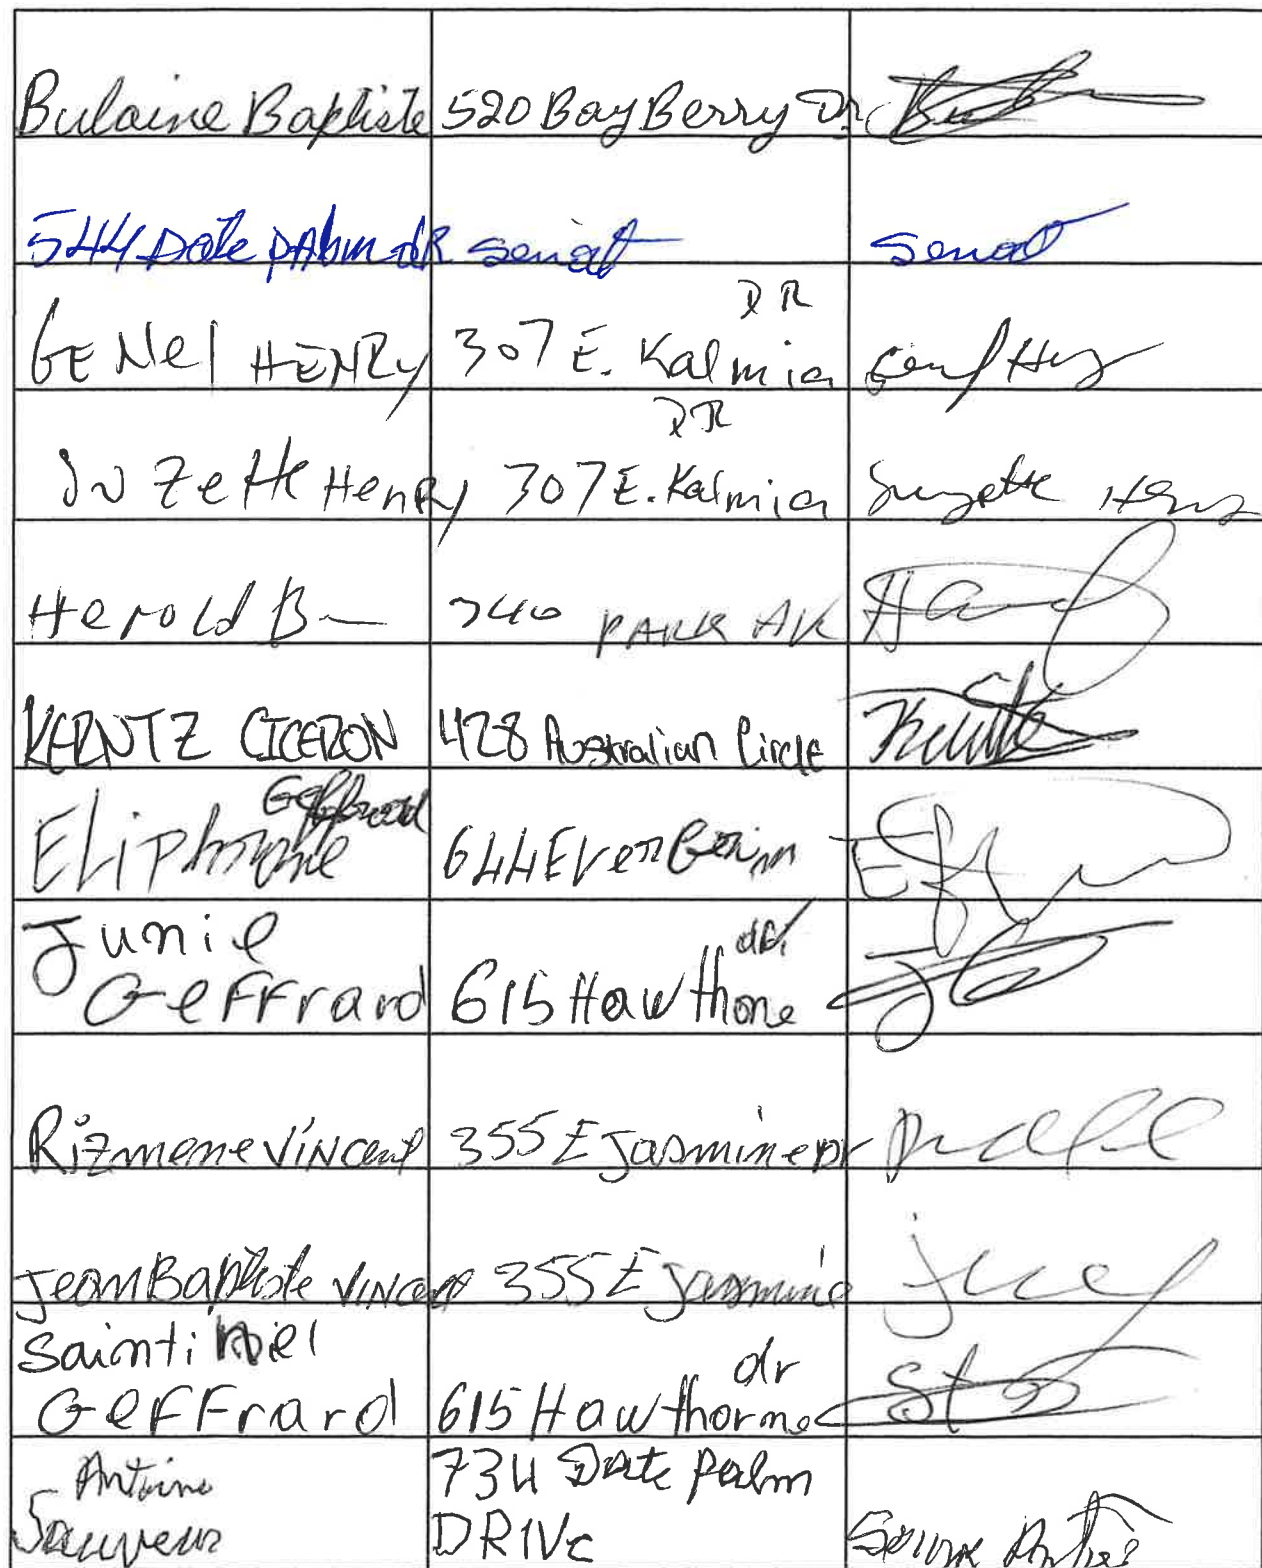 Bulaine Baptiste 520 BayBerry Dr
544 Date pAlm dR Senat Senat
GENel HENRy 307 E. Kalmia DR
SuZette HenRy 307 E. Kalmia DR Suzette Henry
Herold B 740 PARK AV
KERNTZ CICERON 428 Australian Circle
Geffrard
644 Ever
Junie
Geffrard 615 Hawthone dr
Rizmene ViNcent 355 E Jasmine Dr
Jean Baptiste ViNcent 355 E Jasmine
Sainti
Geffrard 615 Hawthorne dr
Antoine
Sauveur
734 Date palm
DRIVe